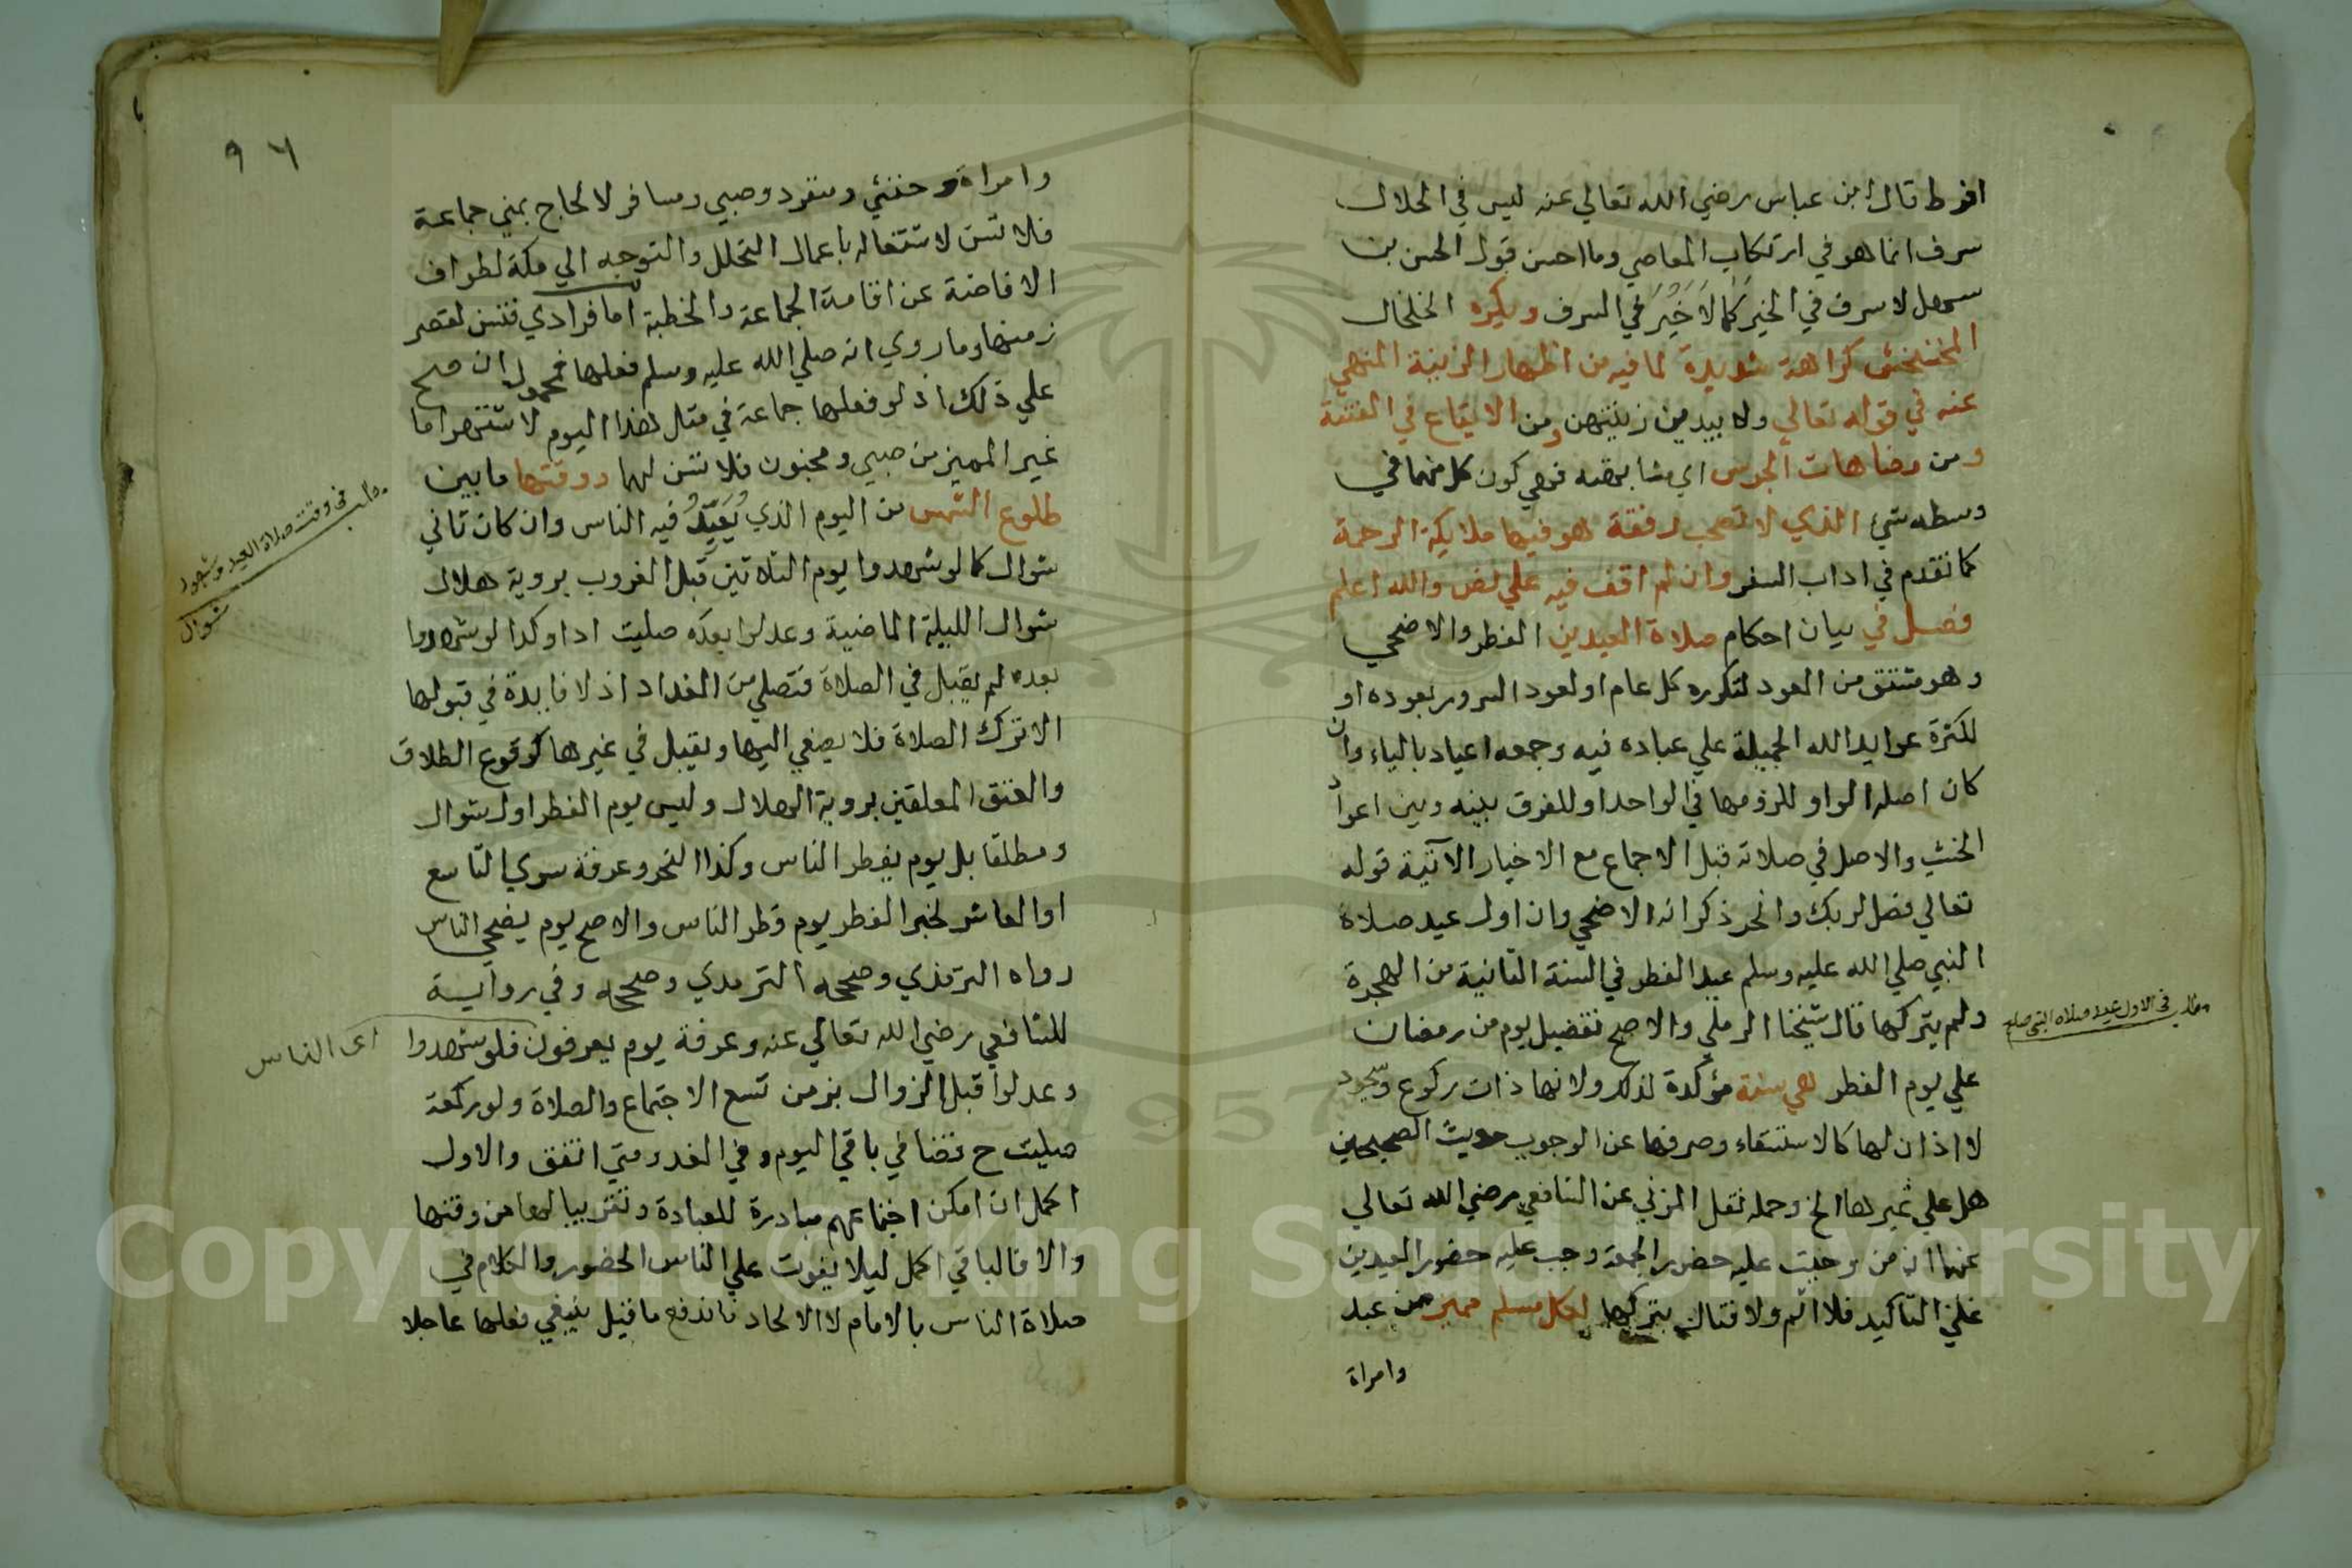 افرط قال ابن عباس رضي الله تعالي عنه ليس في الحلال
سرف انما هو في ارتكاب المعاصي وما احسن قول الحسن بن
سهل لا سرف في الخير كَمَا لَا خَيْرَ في السرف ويكره الخلخال
المخشخش كراهة شديدة لما فيه من اظهار الزينة المنهي
عنه في قوله تعالي ولا يبدين زينتهن ومن الايقاع في الفتنة
ومن مضاهات الجرس اي مشابهته فهي كون كل منهما في
وسطه شئ الذي لا تصحب رفقة هو فيها ملايكة الرحمة
كما تقدم في اداب السفر وان لم اقف فيه علي نص والله اعلم
فصل في بيان احكام صلاة العيدين الفطر والاضحي
وهو مشتق من العود لتكرره كل عام او لعود السرور بعوده او
لكثرة عوايد الله الجميلة علي عباده فيه وجمعه اعياد بالياء وان
كان اصله الواو للزومها في الواحد او للفرق بينه وبين اعواد
الخشب والاصل في صلاته قبل الاجماع مع الاخبار الآتية قوله
تعالي فصل لربك وانحر ذكر انه الاضحي وان اول عيد صلاة
النبي صلي الله عليه وسلم عيد الفطر في السنة الثانية من الهجرة
ولم يتركها قال شيخنا الرملي والاصح تفضيل يوم من رمضان
علي يوم الفطر هي سنة مؤكدة لذلك ولانها ذات ركوع وسجود
لا اذان لها كالاستسقاء وصرفها عن الوجوب حديث الصحيحين
هل علي غيرها الخ وحمله نقل المزني عن الشافعي رضي الله تعالي
عنهما ان من وجبت عليه حضور الجمعة وجب عليه حضور العيدين
علي التاكيد فلا اثم ولا قتال بتركها لكل مسلم مميز من عبد
وامراة
مطلب في الاول عيد صلاه النبي صلعم
٩٦
وامراة وخنثي ومنفرد وصبي ومسافر لا لحاج بمني جماعة
فلا تسن لاشتغاله باعمال التحلل والتوجه الي مكة لطواف
الافاضة عن اقامة الجماعة والخطبة اما فرادي فتسن لقصر
زمنها وما روي انه صلي الله عليه وسلم فعلها فمحمول ان صح
علي ذلك اذ لو فعلها جماعة في مثل هذا اليوم لاشتهر اما
غير المميز من صبي ومجنون فلا تسن لهما ووقتها ما بين
طلوع الشمس من اليوم الذي يُعَيِّدُ فيه الناس وان كان ثاني
شوال كما لو شهدوا يوم الثلاثين قبل الغروب بروية هلال
شوال الليلة الماضية وعدلوا بعده صليت ادا وكذا لو شهدوا
بعده لم يقبل في الصلاة فتصلي من الغد اداء اذ لا فايدة في قبولها
الا ترك الصلاة فلا يصغي اليها ويقبل في غيرها كوقوع الطلاق
والعتق المعلقين بروية الهلال وليس يوم الفطر اول شوال
ومطلقا بل يوم يفطر الناس وكذا النحر وعرفة سوي التاسع
او العاشر لخبر الفطر يوم فطر الناس والاصح يوم يضحي الناس
رواه الترمذي وصححه الترمدي وصححه وفي رواية
للشافعي رضي الله تعالي عنه وعرفة يوم يعرفون فلو شهدوا
وعدلوا قبل الزوال بزمن تسع الاجتماع والصلاة ولو ركعة
صليت ح قضا في باقي اليوم وفي الغد ومتي اتفق والاول
اكمل ان امكن اجتماعهم مبادرة للعبادة وتقريبا لها من وقتها
والا فالباقي اكمل ليلا يفوت علي الناس الحضور والكلام في
صلاة الناس بالامام لا الالحاد فاندفع ما قيل ينبغي فعلها عاجلا
مطلب في وقت صلاة العيد وشهود
شوال
اى الناس
Copyright © King Saud University
1957